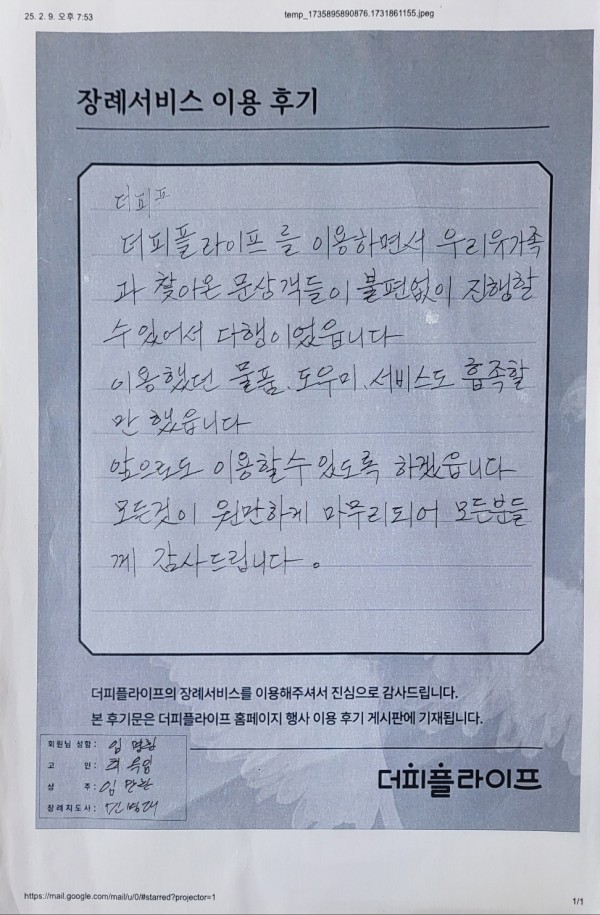 25. 2. 9. 오후 7:53
temp_1735895890876.1731861155.jpeg
장례서비스 이용 후기
더피프
더피플라이프를 이용하면서 우리유가족
과 찾아온 문상객들이 불편없이 진행할
수 있어서 다행이었읍니다
이용했던 물품、도우미、서비스도 흡족할
만 했읍니다
앞으로도 이용할수 있도록 하겠읍니다
모든것이 원만하게 마무리되어 모든분들
께 감사드립니다。
더피플라이프의 장례서비스를 이용해주셔서 진심으로 감사드립니다.
본 후기문은 더피플라이프 홈페이지 행사 이용 후기 게시판에 기재됩니다.
회원님 성함 :
고 인 :
상 주 : 임만한
장례지도사 :
더피플라이프
https://mail.google.com/mail/u/0/#starred?projector=1
1/1